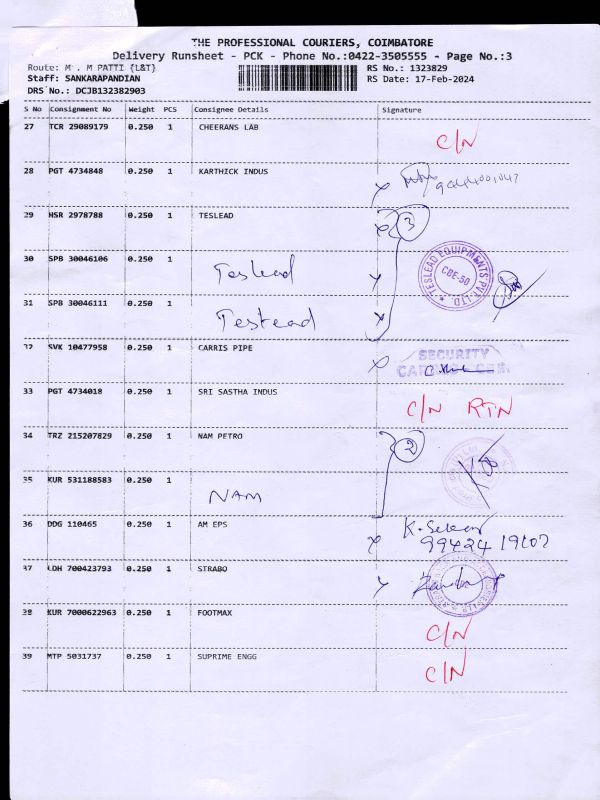 THE PROFESSIONAL COURIERS, COIMBATORE
Delivery Runsheet - PCK - Phone No.:0422-3505555 - Page No.:3
Route: M . M PATTI {L&T}
RS No.: 1323829
Staff: SANKARAPANDIAN
RS Date: 17-Feb-2024
DRS No.: DCJB132382903
S No Consignment No Weight PCS Consignee Details Signature
27 TCR 29089179 0.250 1 CHEERANS LAB C/N
28 PGT 4734848 0.250 1 KARTHICK INDUS
29 HSR 2978788 0.250 1 TESLEAD 3
30 SPB 30046106 0.250 1 Teslead
TESLEAD EQUIPMENTS PVT. LTD. CBE-50
31 SPB 30046111 0.250 1 Teslead
32 SVK 10477958 0.250 1 CARRIS PIPE SECURITY
33 PGT 4734018 0.250 1 SRI SASTHA INDUS C/N RTN
34 TRZ 215207829 0.250 1 NAM PETRO 2
35 KUR 531188583 0.250 1 NAM
36 DDG 110465 0.250 1 AM EPS
37 LDH 700423793 0.250 1 STRABO
38 KUR 7000622963 0.250 1 FOOTMAX C/N
39 MTP 5031737 0.250 1 SUPRIME ENGG C/N